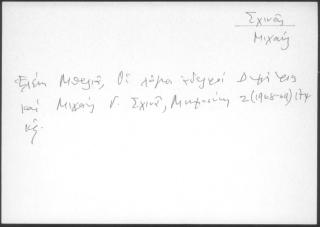 Σχινᾶς
Μιχαήλ
Ἑλένη Μπελιᾶ, Οἱ λόγιοι ἀδελφοί Δημήτριος
καί Μιχαήλ Γ. Σχινᾶ, Μνημοσύνη 2 (1968-69) 174
κἑ.